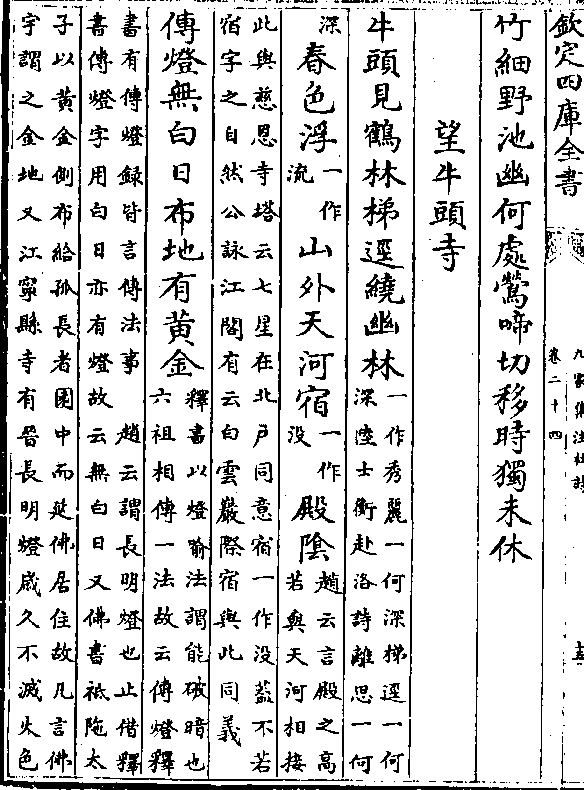 欽定四庫全書
九家集注杜詩
卷二十四
竹細野池幽何處鶯啼切移時獨未休
望牛頭寺
牛頭見鶴林梯逕繞幽林
一作秀麗一何深梯逕一何
深陸士衡赴洛詩離思一何
深
春色浮
一作
流
山外天河宿
一作
没
殿陰
趙云言殿之高
若與天河相接
此與慈恩寺塔云七星在北戶同意宿一作没葢不若
宿字之自然公詠江閣有云白雲巖際宿與此同義
傳燈無白日布地有黄金
釋書以燈喻法謂能破暗也
六祖相傳一法故云傳燈釋
書有傳燈録皆言傳法事 趙云謂長明燈也止借釋
書傳燈字用白日亦有燈故云無白日又佛書祇陁太
子以黄金側布給孤長者園中而延佛居住故凡言佛
宇謂之金地又江寧縣寺有晉長明燈歲久不滅火色